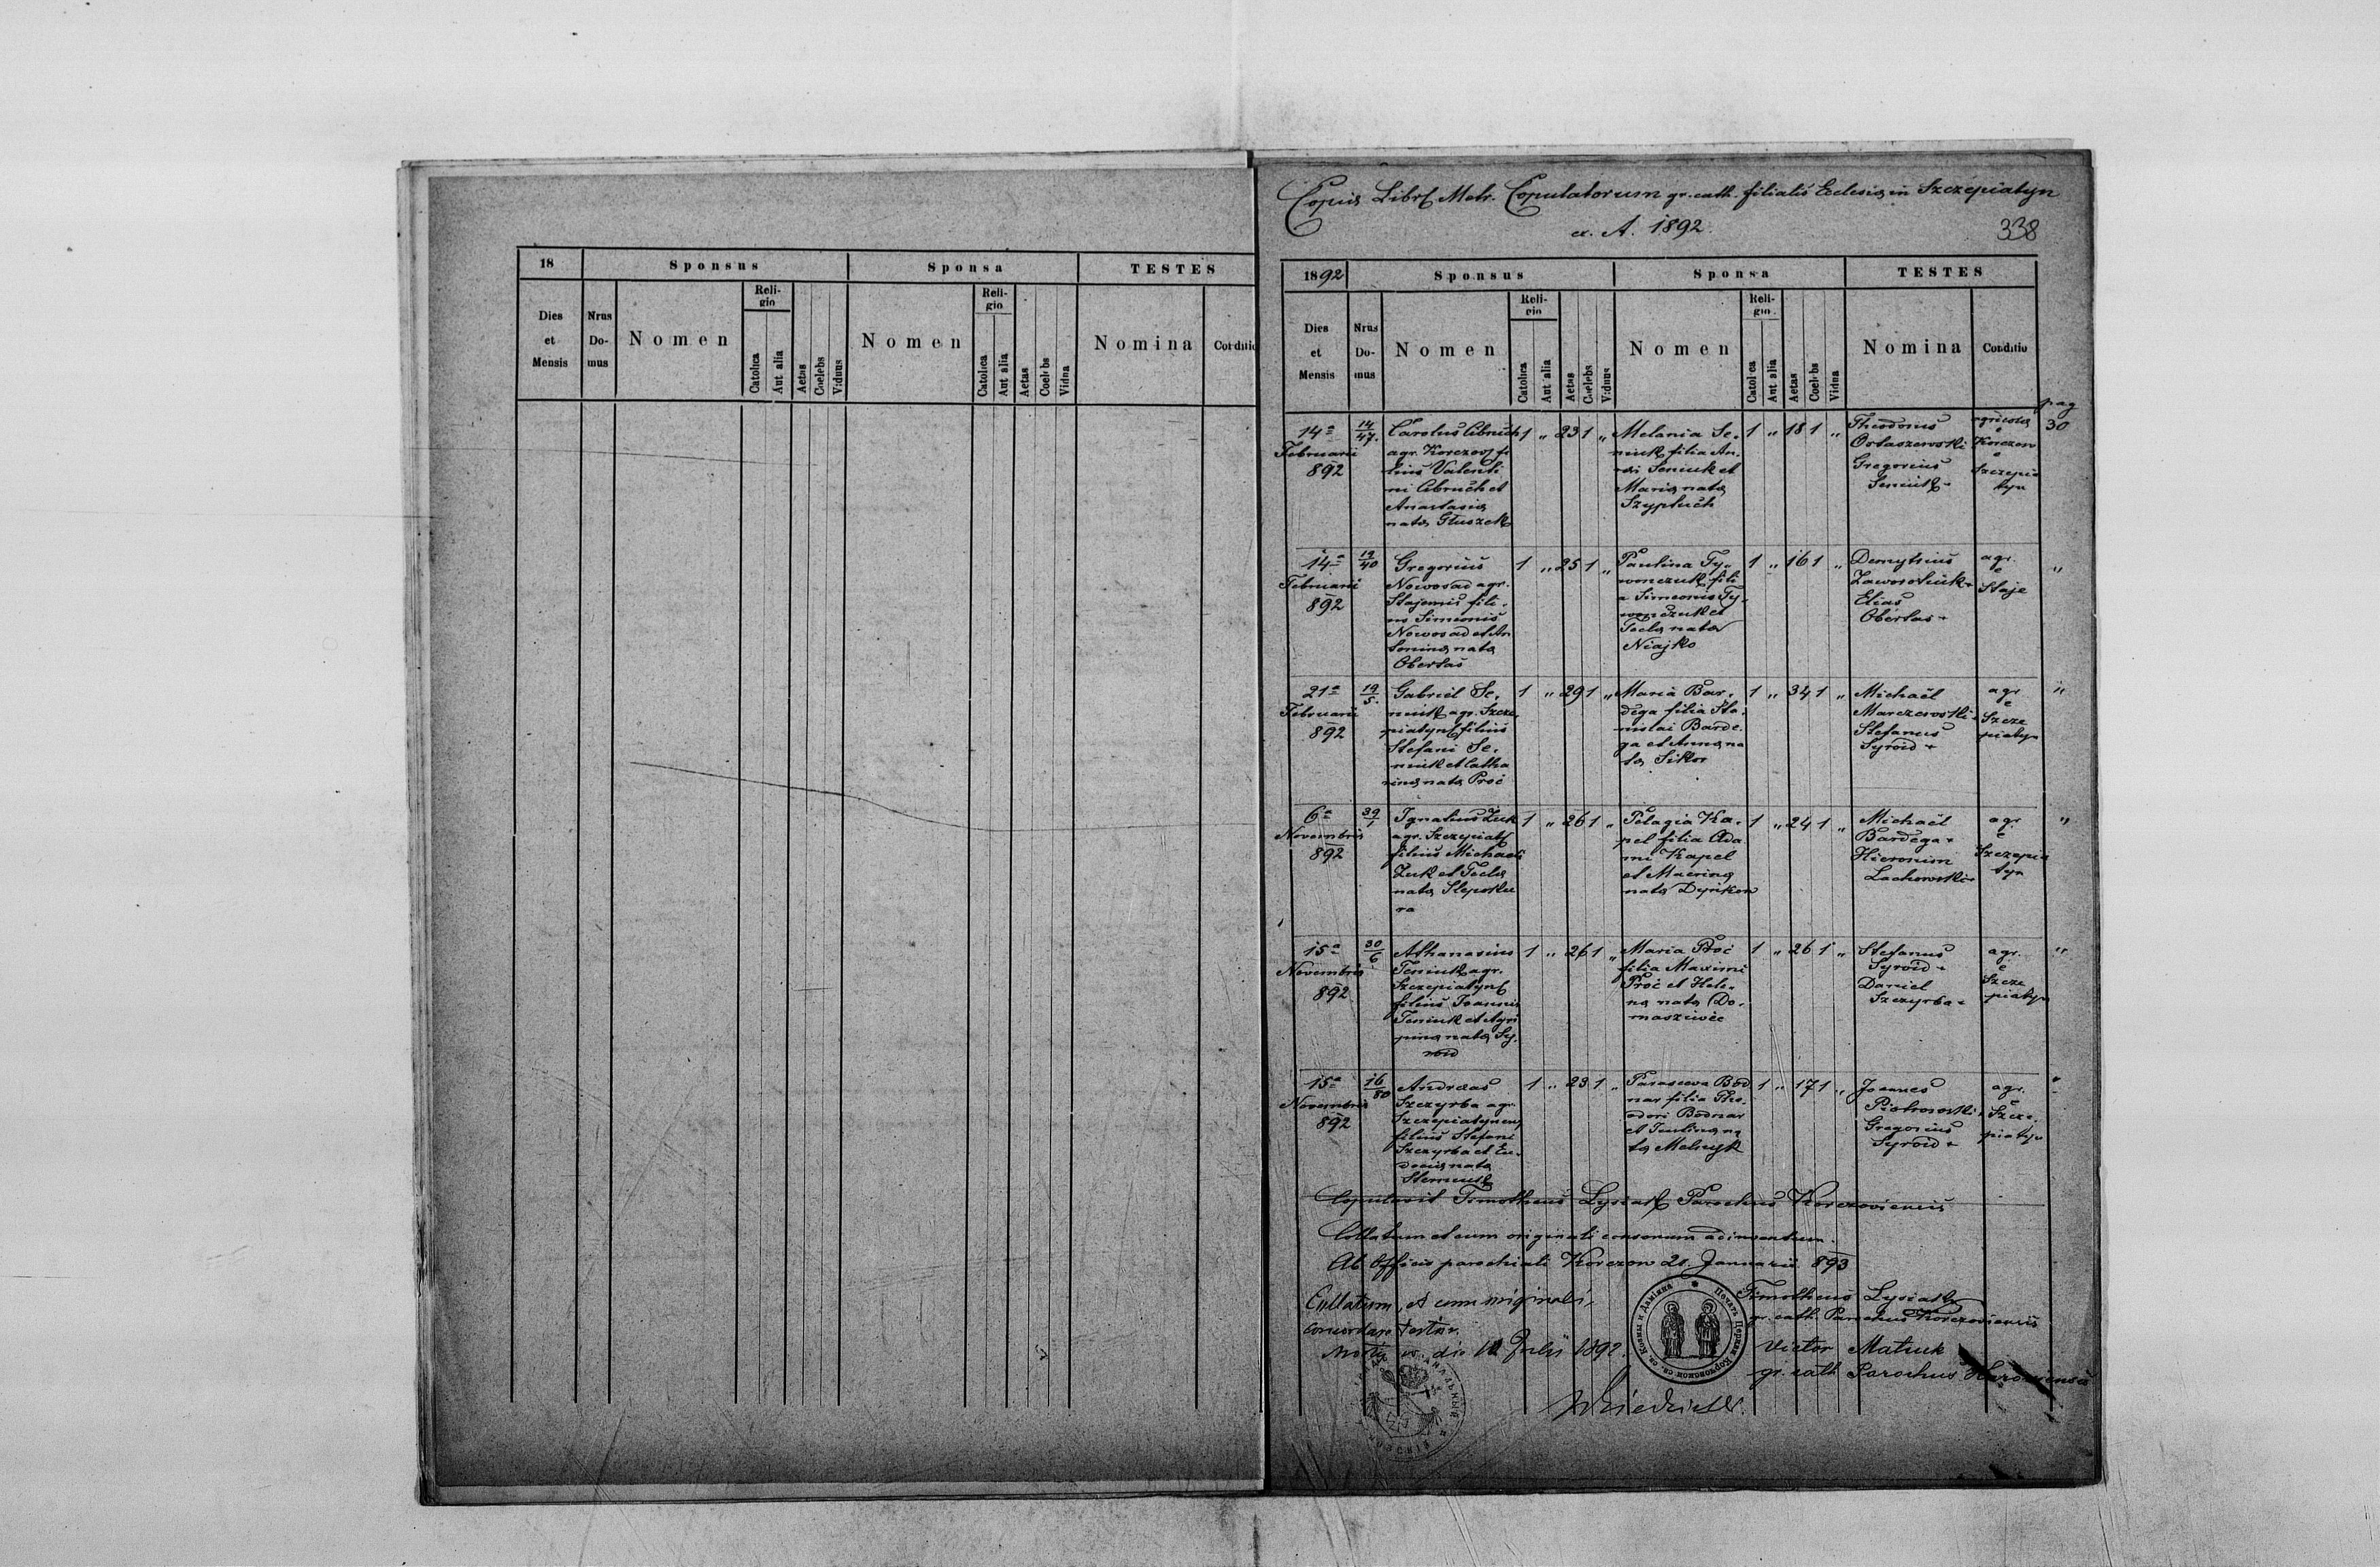 18
Sponsus
Sponsa
TESTES
Dies et Mensis
Nrus Do- mus
Nomen
Reli- gio
Catolica
Aut alia
Aetas
Coelebs
Viduus
Nomen
Reli- gio
Catolica
Aut alia
Aetas
Coelebs
Vidua
Nomina
Conditio
Copia Libri Metr. Copulatorum gr. cath. filialis Ecclesia in Szczepiatyn
a. A. 1892.
338
1892
Sponsus
Sponsa
TESTES
Dies et Mensis
Nrus Do- mus
Nomen
Reli- gio
Catolica
Aut alia
Aetas
Coelebs
Viduus
Nomen
Reli- gio
Catolica
Aut alia
Aetas
Coelebs
Vidua
Nomina
Conditio
pag
30
14a
Februarii
892
14/47.
Carolus Cibruch
agr. Korczov fi
lius Valenti
ni Cibruch et
Anastasia
nata Głuszek
1 " 23 1 "
Melania Se-
niuk filia An-
rei Seniuk et
Maria nata
Szypłuch
1 " 18 1 "
Theodorus
Ostaszewski
Gregorius
Seniuk +
agricola
e
Korczow
e
Szczepia
tyn
14a
Februarii
892
19/40
Gregorius
Nowosad agr.
Stajensis fili-
us Simeonis
Nowosad et An
tonina nata
Obertas
1 " 25 1 "
Paulina Ty-
wonczuk fili
a Simeonis Ty-
wonczuk et
Tecla nata
Niajko
1 " 16 1 "
Demytrius
Zaworotiuk +
Elias
Obertas +
agr.
e
Staje
"
21a
Februarii
892
19/5.
Gabriel Se-
niuk agr. Szcze
piatyn filius
Stefani Se-
niuk et Catha
rina nata Proć
1 " 29 1 "
Maria Bar-
dega filia Sta-
nislai Barde-
ga et Anna na
ta Sikor
1 " 34 1 "
Michaël
Marczewski +
Stefanus
Syroid +
agr
e
Szcze
piatyn
"
6a
Novembris
892
39/1
Ignatius Żuk
agr. Szczepiat
filius Michaeli
Żuk et Tecla
nata
ra
1 " 26 1 "
Pelagia Ka-
pel filia Ada
mi Kapel
et Macrina
nata Dyrikow
1 " 24 1 "
Michaël
Bardega +
Hieronim
Lachowski +
agr.
e
Szczepia
tyn
"
15a
Novembris
892
30/6
Athanasius
Teniuk agr.
Szczepiatyn
filius Joannis
Teniuk et Agri
pina nata Sy-
roid
1 " 26 1 "
Maria Proć
filia Maximi
Proć et Hele-
na nata Do-
masziwic
1 " 26 1 "
Stefanus
Syroid +
Daniel
Szczyrba +
agr.
e
Szcze
piatyn
"
15a
Novembris
892
16/80
Andreas
Szczyrba agr.
Szczepiatynen
filius Stefani
Szczyrba et Eu-
docia nata
1 " 23 1 "
Parasceva Bod
nar filia The-
odori Bodnar
et Justina na
ta Melnyk
1 " 17 1 "
Joannes
Piotrowski +
Gregorius
Syroid +
agr.
e
Szcze-
piatyn
"
Copulavit Timotheus Lysiak Parochus Korczoviensis
Collatum et cum originali consonum adinventum.
Ab Officio parochiali Korczow 21 Januarii 893
Collatum, et cum originali,
concordare testor.
die 12 Julii 1892.
Timotheus Lysiak
gr. cath. Parochus Korczoviensis
Victor Matiuk
gr. cath Parochus